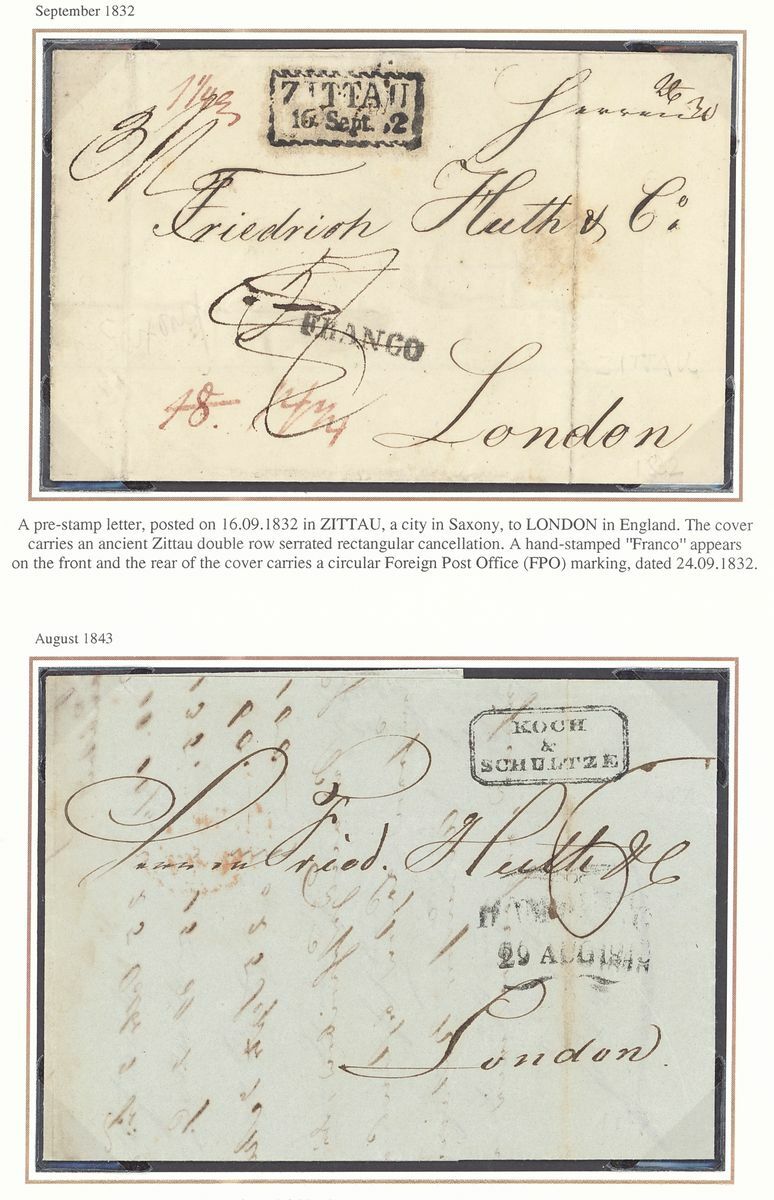 September 1832
ZITTAU
16. Sept. 32
Herren
Friedrich Huth & Co.
FRANCO
London
A pre-stamp letter, posted on 16.09.1832 in ZITTAU, a city in Saxony, to LONDON in England. The cover
carries an ancient Zittau double row serrated rectangular cancellation. A hand-stamped "Franco" appears
on the front and the rear of the cover carries a circular Foreign Post Office (FPO) marking, dated 24.09.1832.
August 1843
KOCH
&
SCHULTZE
Herren Fried. Huth & C
29 AUG 184
London.